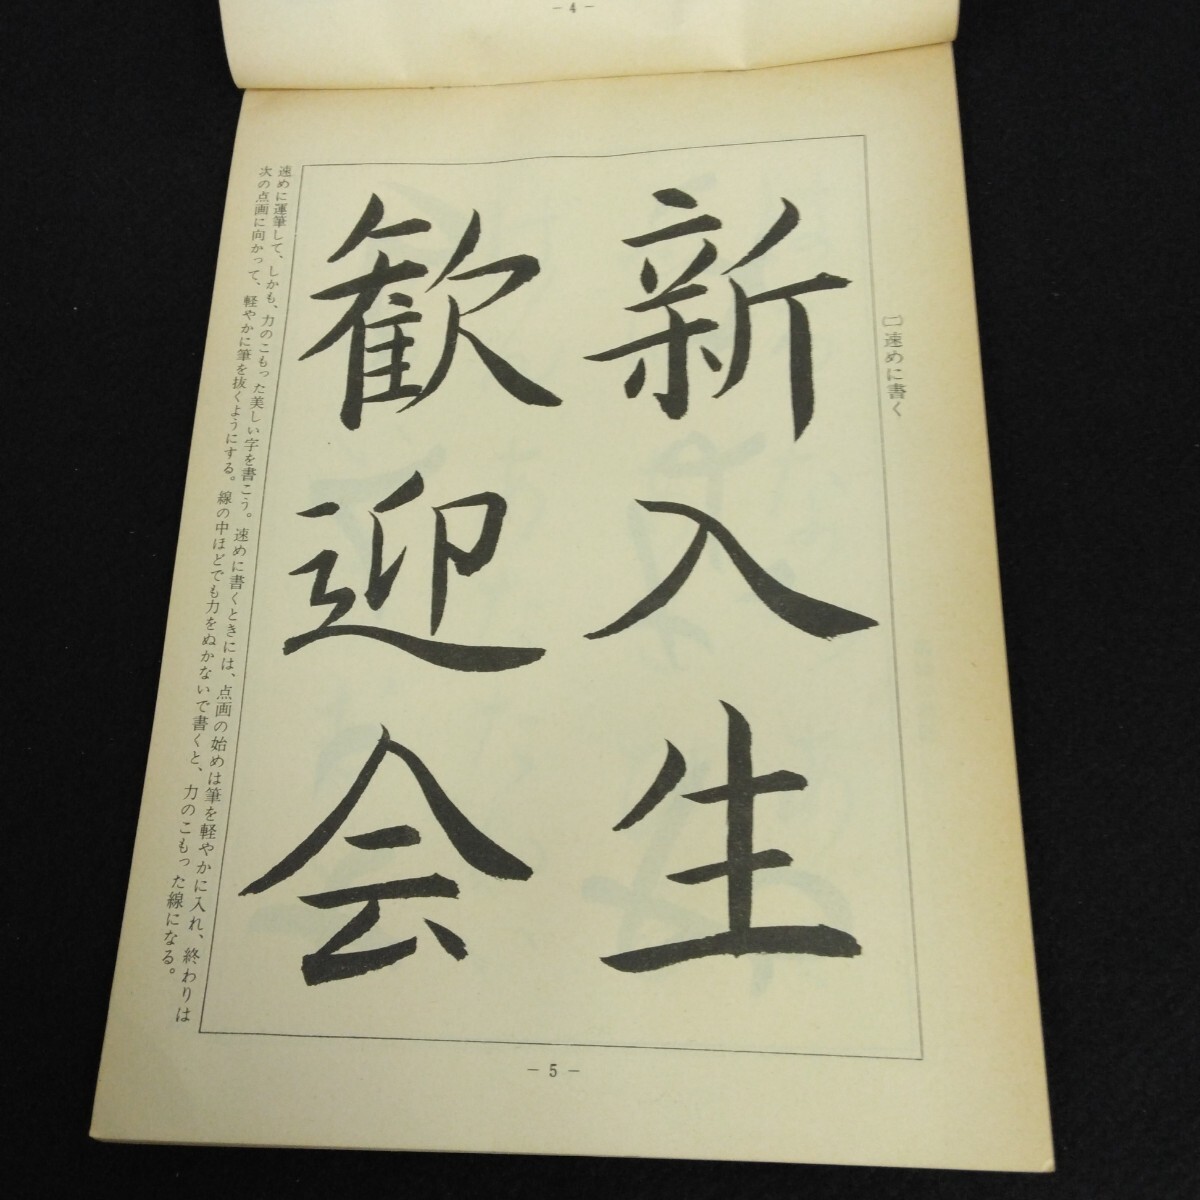 - 4 -
㈡速めに書く
新入生
歓迎会
速めに運筆して、しかも、力のこもった美しい字を書こう。速めに書くときには、点画の始めは筆を軽やかに入れ、終わりは
次の点画に向かって、軽やかに筆を抜くようにする。線の中ほどでも力をぬかないで書くと、力のこもった線になる。
- 5 -